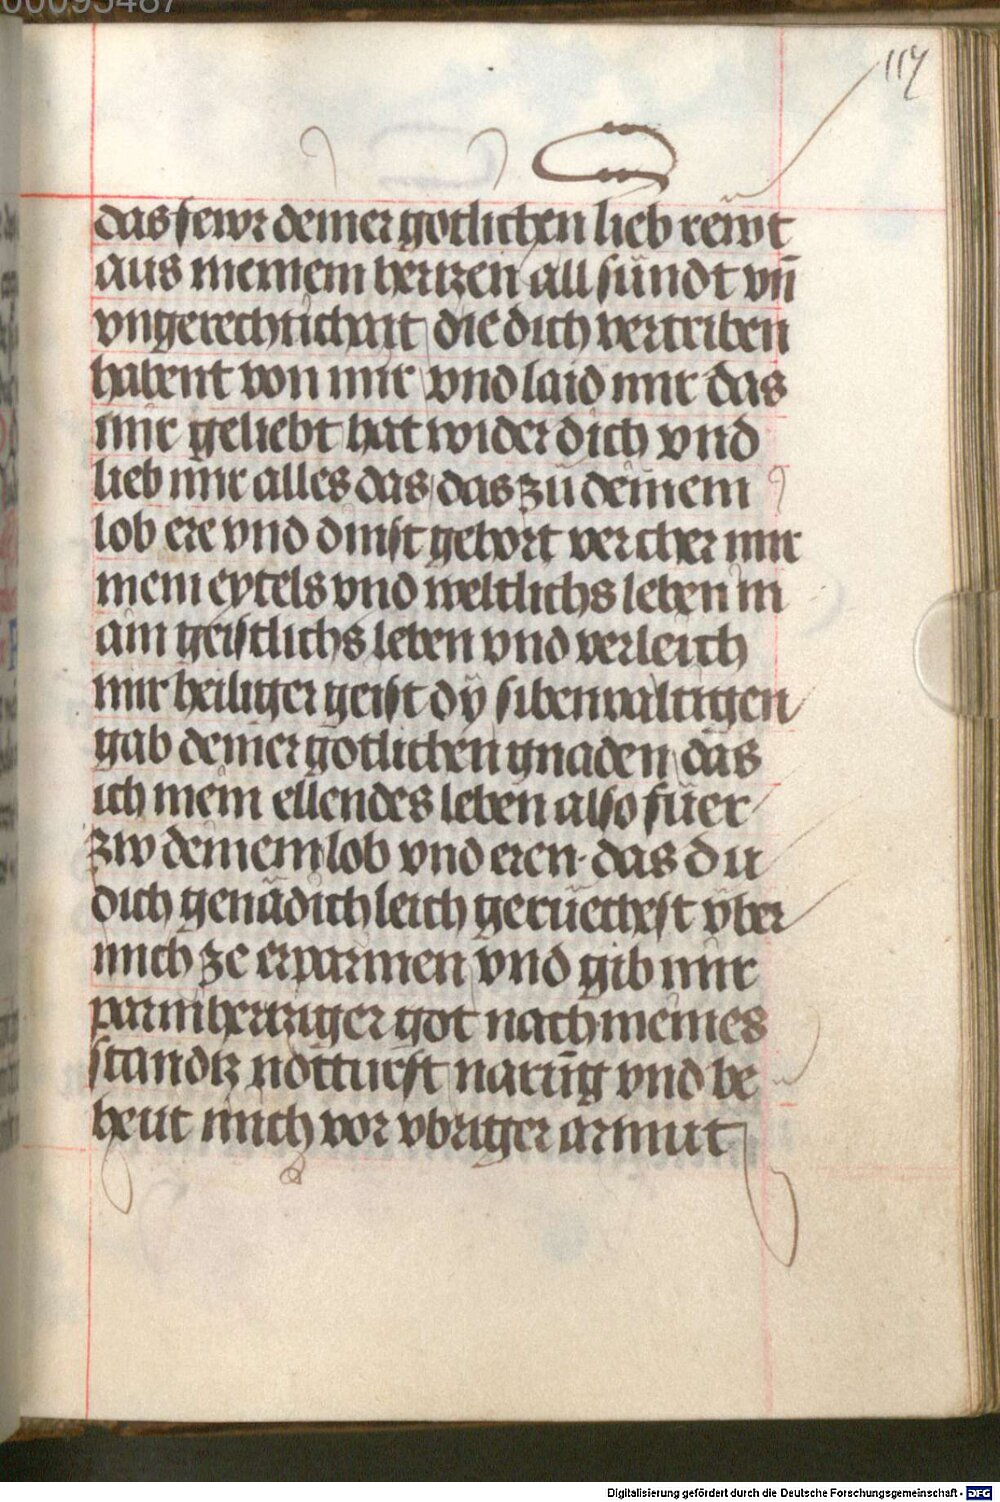 00095487
117
das fewr deiner gotlichen lieb rewt
aus meinem hertzen all sündt vn̄
vngerechtichait die dich vertriben
habent von mir vnd laid mir das
mir geliebt hat wider dich vnd
lieb mir alles das das zů deinem
lob ere vnd dinst gehort vercher mir
mein eytels vnd weltlichs leben in
ain geistlichs leben vnd verleich
mir heiliger geist dÿ sibenualtigen
gab deiner gotlichen gnaden das
ich mein ellendes leben also füer
zw deinem lob vnd eren· das du
dich genädichleich geruechest vber
mich ze erparmen vnd gib mir
parmhertziger got nach meines
standtz notturft narūg vnd be
heut mich vor vbriger armut
Digitalisierung gefördert durch die Deutsche Forschungsgemeinschaft - DFG